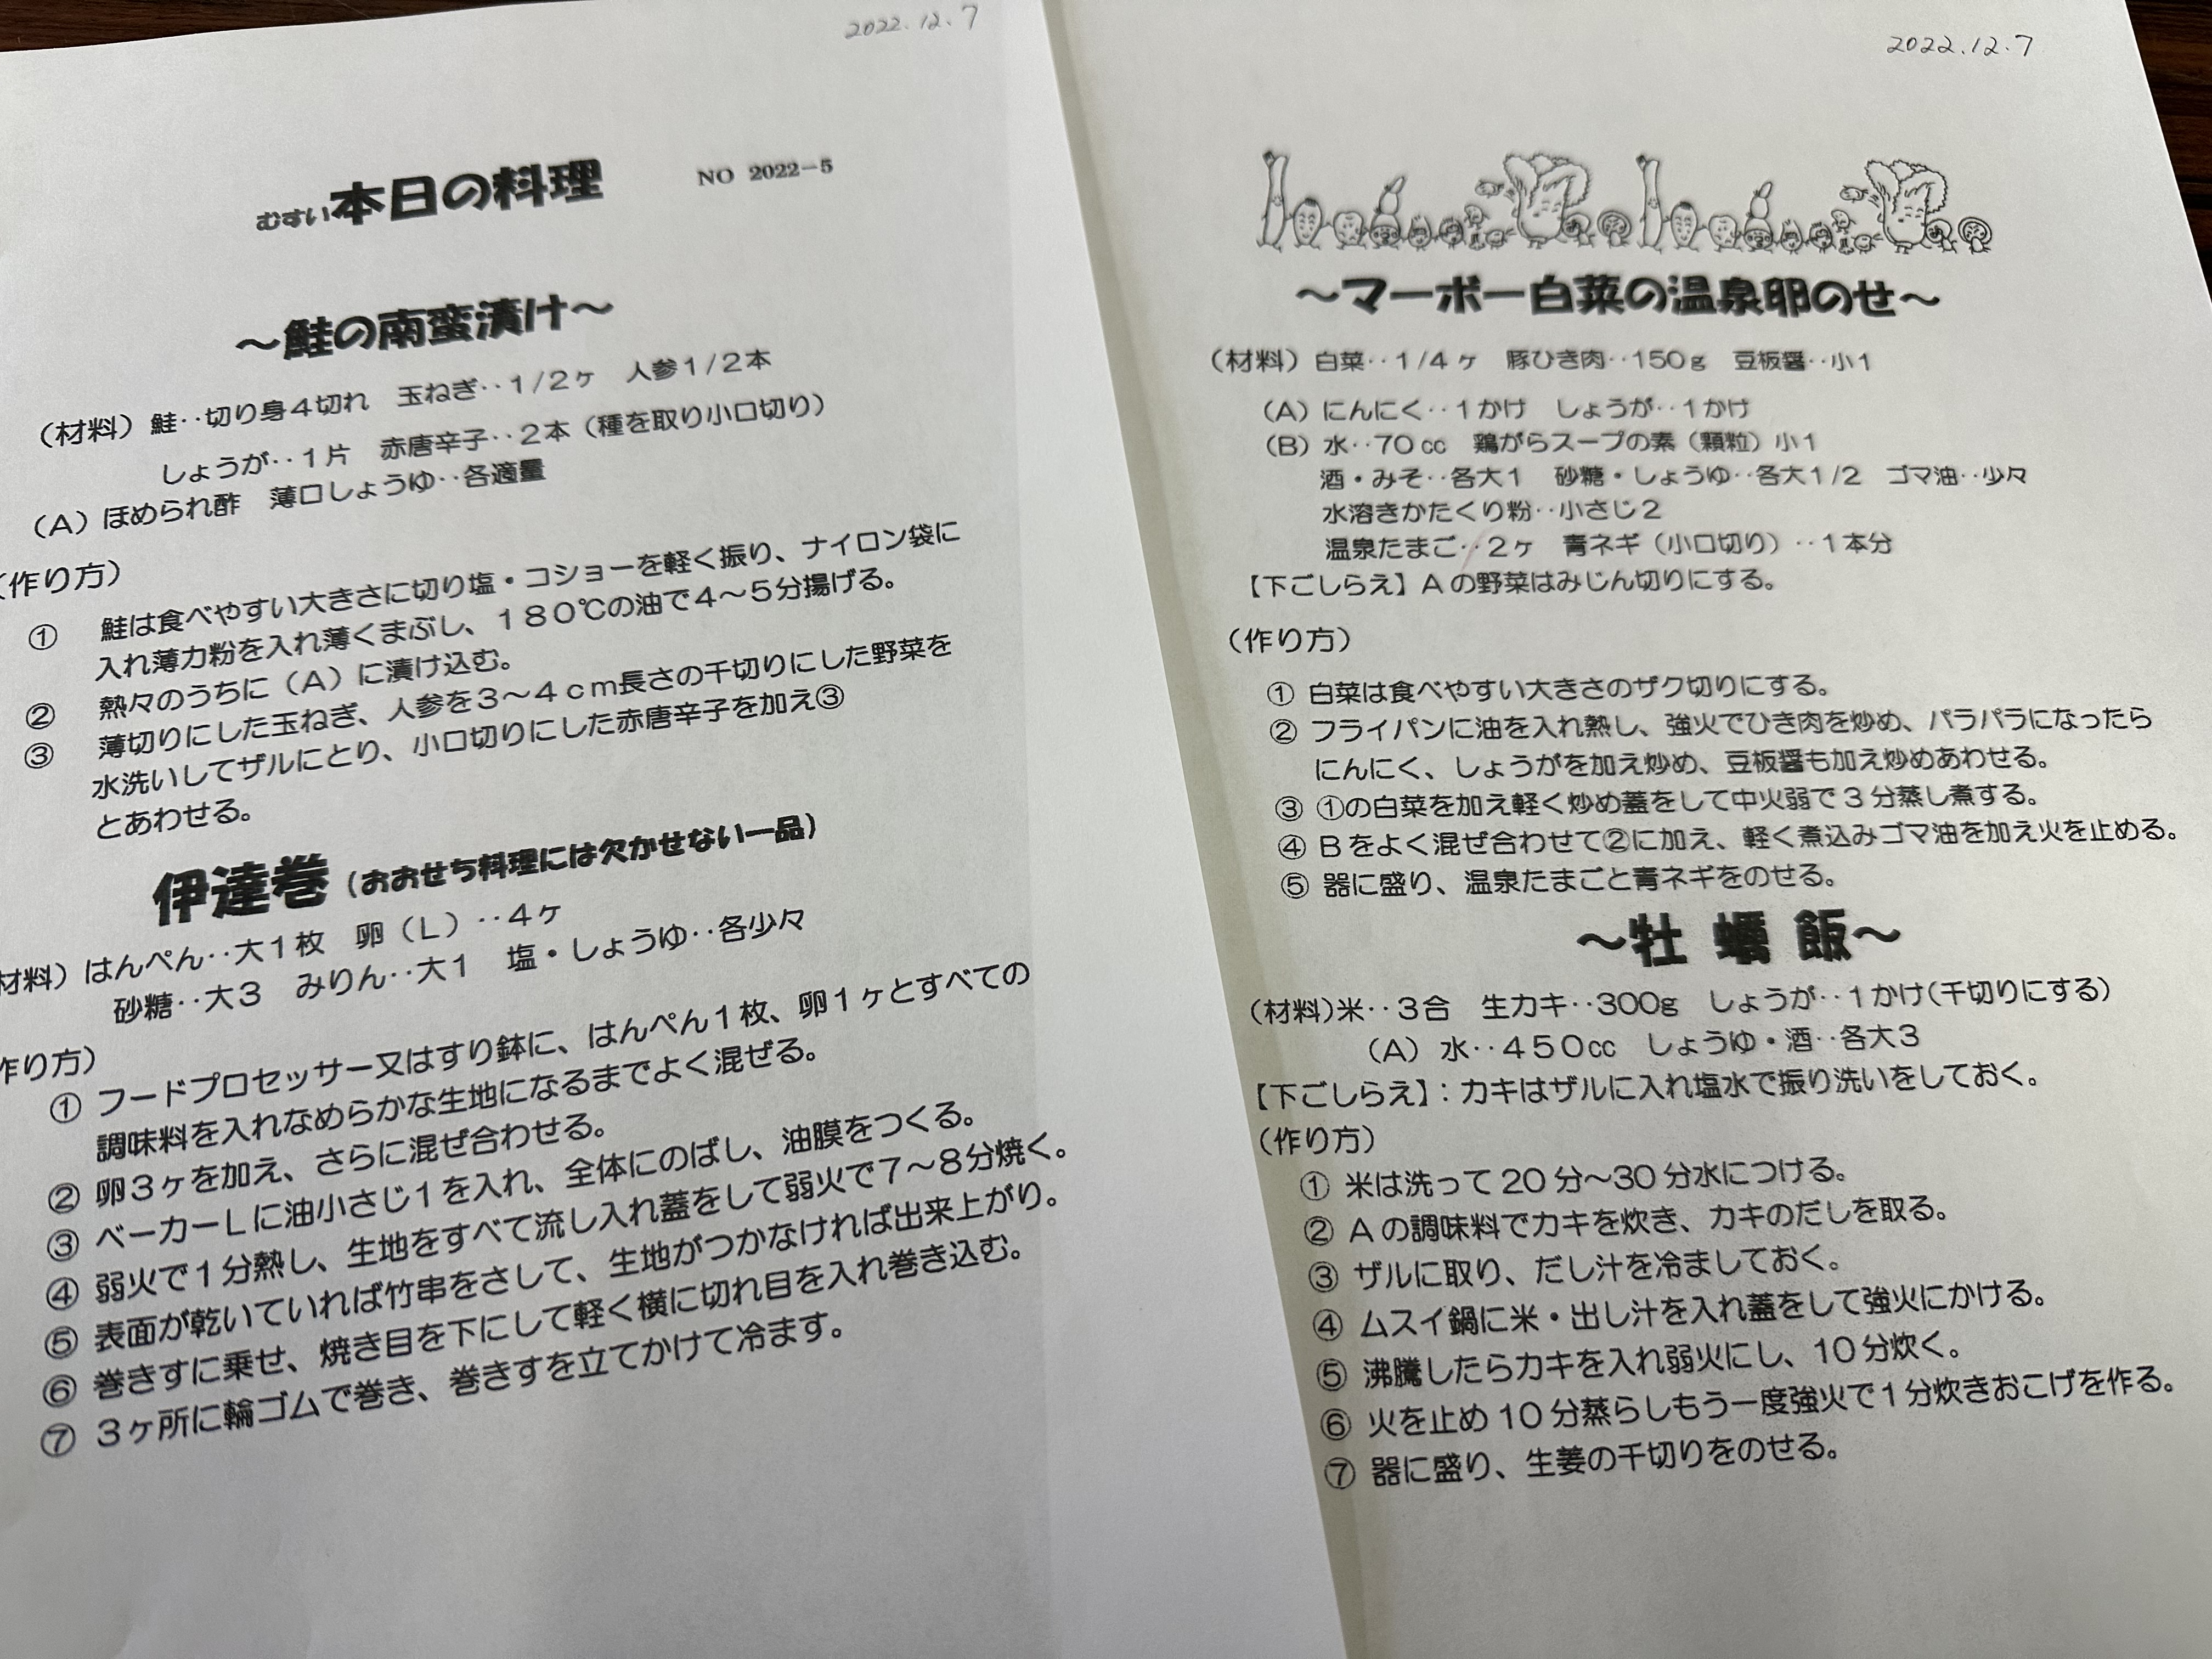 2022.12.7
むすい本日の料理 NO 2022-5
~鮭の南蛮漬け~
(材料)鮭‥切り身4切れ 玉ねぎ‥1/2ヶ 人参1/2本
しょうが‥1片 赤唐辛子‥2本(種を取り小口切り)
(A)ほめられ酢 薄口しょうゆ‥各適量
(作り方)
① 鮭は食べやすい大きさに切り塩・コショーを軽く振り、ナイロン袋に
入れ薄力粉を入れ薄くまぶし、180℃の油で4~5分揚げる。
② 熱々のうちに(A)に漬け込む。
③ 薄切りにした玉ねぎ、人参を3~4cm長さの千切りにした野菜を
水洗いしてザルにとり、小口切りにした赤唐辛子を加え③
とあわせる。
伊達巻(おおせち料理には欠かせない一品)
材料)はんぺん‥大1枚 卵(L)‥4ヶ
砂糖‥大3 みりん‥大1 塩・しょうゆ‥各少々
作り方)
① フードプロセッサー又はすり鉢に、はんぺん1枚、卵1ヶとすべての
調味料を入れなめらかな生地になるまでよく混ぜる。
② 卵3ヶを加え、さらに混ぜ合わせる。
③ ベーカーLに油小さじ1を入れ、全体にのばし、油膜をつくる。
④ 弱火で1分熱し、生地をすべて流し入れ蓋をして弱火で7~8分焼く。
⑤ 表面が乾いていれば竹串をさして、生地がつかなければ出来上がり。
⑥ 巻きすに乗せ、焼き目を下にして軽く横に切れ目を入れ巻き込む。
⑦ 3ヶ所に輪ゴムで巻き、巻きすを立てかけて冷ます。
2022.12.7
~マーボー白菜の温泉卵のせ~
(材料)白菜‥1/4ヶ 豚ひき肉‥150g 豆板醤‥小1
(A)にんにく‥1かけ しょうが‥1かけ
(B)水‥70cc 鶏がらスープの素(顆粒)小1
酒・みそ‥各大1 砂糖・しょうゆ‥各大1/2 ゴマ油‥少々
水溶きかたくり粉‥小さじ2
温泉たまご‥2ヶ 青ネギ(小口切り)‥1本分
【下ごしらえ】Aの野菜はみじん切りにする。
(作り方)
① 白菜は食べやすい大きさのザク切りにする。
② フライパンに油を入れ熱し、強火でひき肉を炒め、パラパラになったら
にんにく、しょうがを加え炒め、豆板醤も加え炒めあわせる。
③ ①の白菜を加え軽く炒め蓋をして中火弱で3分蒸し煮する。
④ Bをよく混ぜ合わせて②に加え、軽く煮込みゴマ油を加え火を止める。
⑤ 器に盛り、温泉たまごと青ネギをのせる。
~牡蠣飯~
(材料)米‥3合 生カキ‥300g しょうが‥1かけ(千切りにする)
(A)水‥450cc しょうゆ・酒‥各大3
【下ごしらえ】:カキはザルに入れ塩水で振り洗いをしておく。
(作り方)
① 米は洗って20分~30分水につける。
② Aの調味料でカキを炊き、カキのだしを取る。
③ ザルに取り、だし汁を冷ましておく。
④ ムスイ鍋に米・出し汁を入れ蓋をして強火にかける。
⑤ 沸騰したらカキを入れ弱火にし、10分炊く。
⑥ 火を止め10分蒸らしもう一度強火で1分炊きおこげを作る。
⑦ 器に盛り、生姜の千切りをのせる。